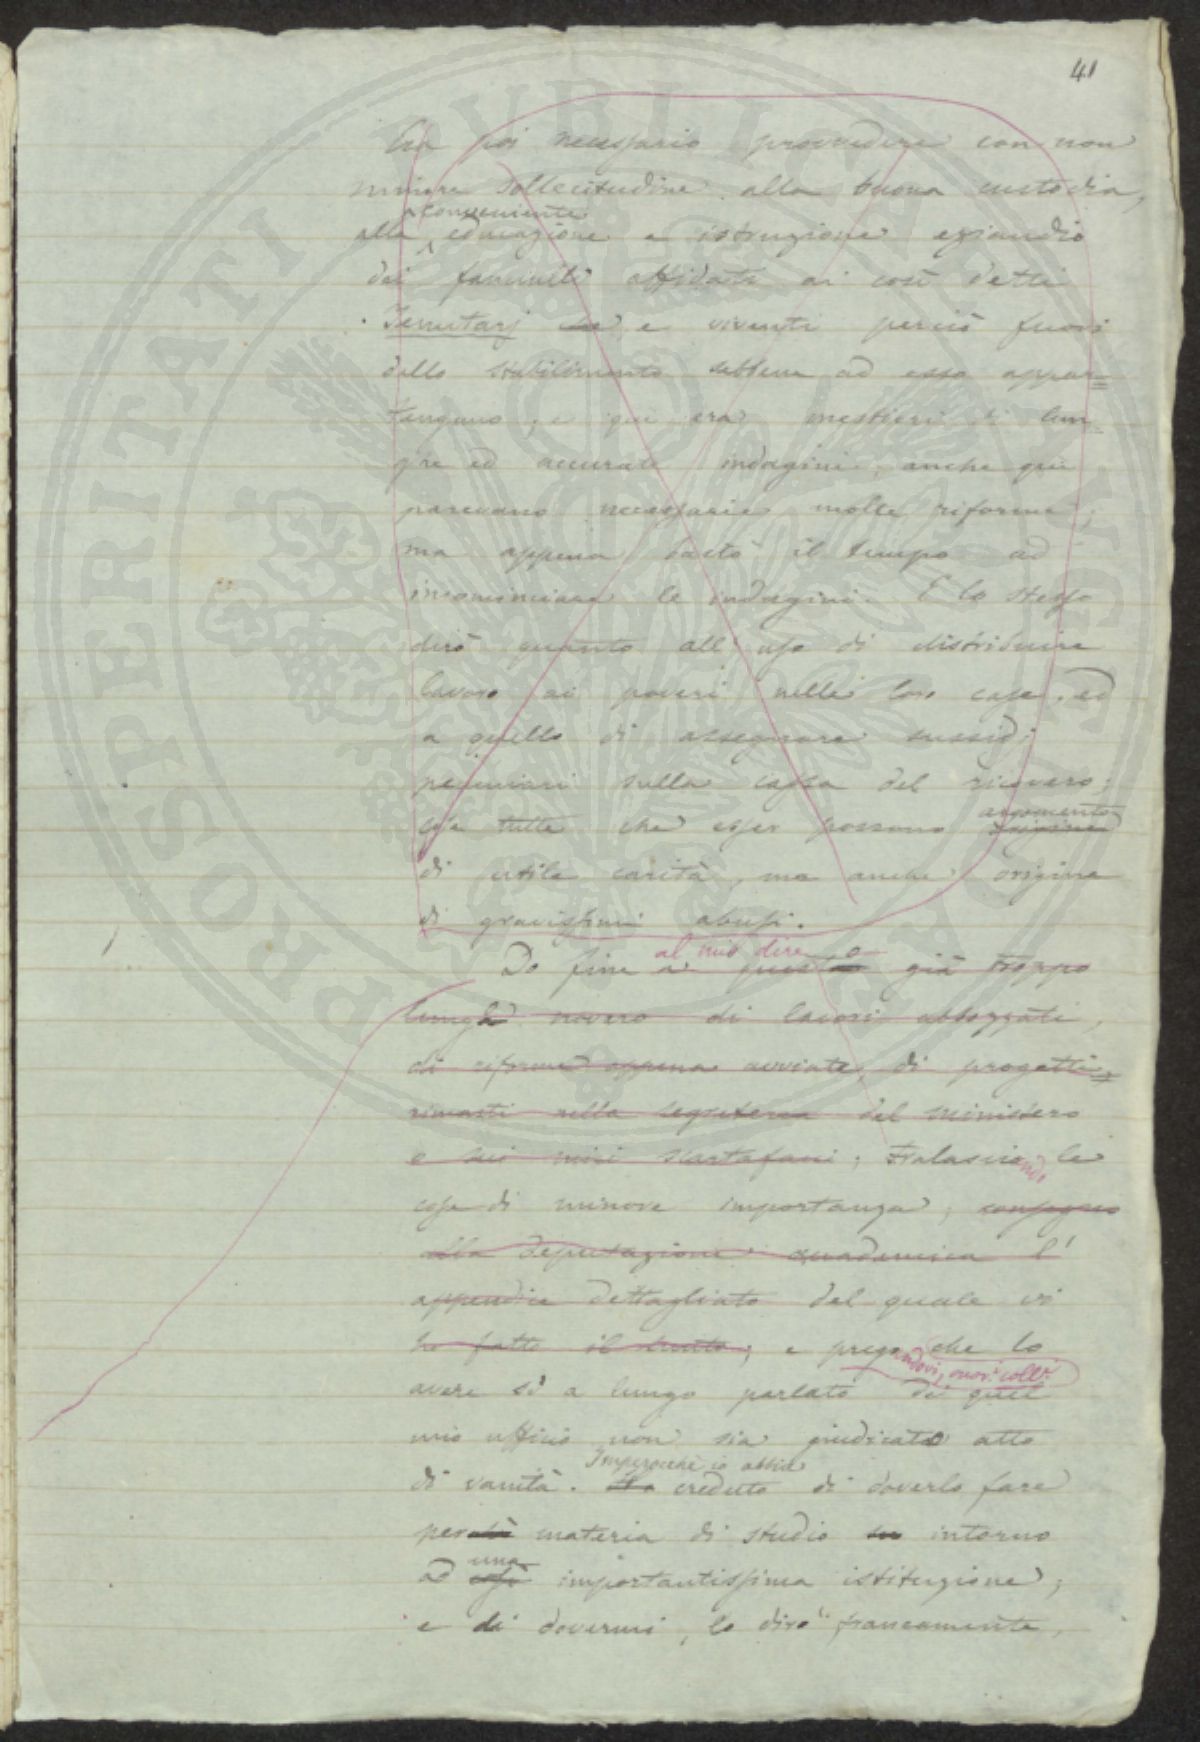 41
Era poi necessario provvedere con non
minore sollecitudine alla buona custodia,
conveniente
alla educazione e istruzione eziandio
dei fanciulli affidati ai così detti
Tenutarj e viventi perciò fuori
dello stabilimento sebbene ad esso appar=
tengano, e qui era mestieri di lun=
ghe ed accurate indagini, anche qui
parevano necessarie molte riforme;
ma appena bastò il tempo ad
incominciare le indagini. E lo stesso
dirò quanto all'uso di distribuire
lavoro ai poveri nelle loro case, ed
a quello di assegnare sussidj
pecuniari sulla cassa del ricovero;
argomento
cose tutte che esser possono origine
di utile carità, ma anche origine
di gravissimi abusi.
al mio dire
Do fine a questo già troppo
lungo novero di lavori abbozzati,
di riforme appena avviate, di progetti
rimasti nella segreteria del ministero
o tra i miei scartafacci; tralascio le
ando
cose di minore importanza; consegno
alla Deputazione accademica l'
appendice dettagliato del quale vi
ho fatto il sunto; e prego che lo
andovi, onor.i coll.i
avere sì a lungo parlato di quel
mio ufficio non sia giudicato atto
Imperocchè io abbia
di vanità. Ho creduto di doverlo fare
perchè materia di studio su intorno
una
ad importantissima istituzione;
e di dovermi, lo dirò francamente,